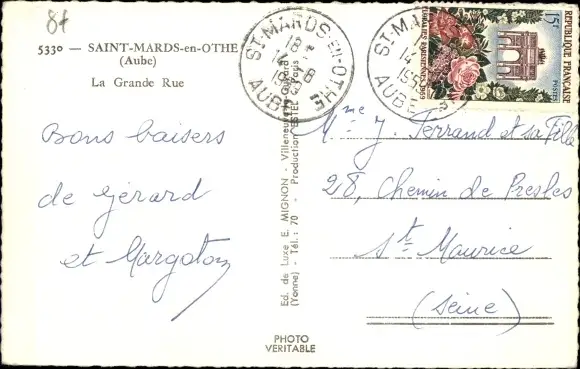 84
5330 — SAINT-MARDS-en-OTHE
(Aube)
La Grande Rue
Bons baisers
de Gérard
et Margoton
Ed. de Luxe E. MIGNON - Villeneuve-la-Guyard
(Yonne) - Tél.: 70 - Production ESTEL - Paris
PHOTO
VERITABLE
ST-MARDS-EN-OTHE
18 H
14 - 8
AUBE
ST-MARDS
14
AUBE
15F
REPUBLIQUE FRANÇAISE
POSTES
Mme J. Terrand et sa Fille
28, Chemin de Presles
St Maurice
(Seine)